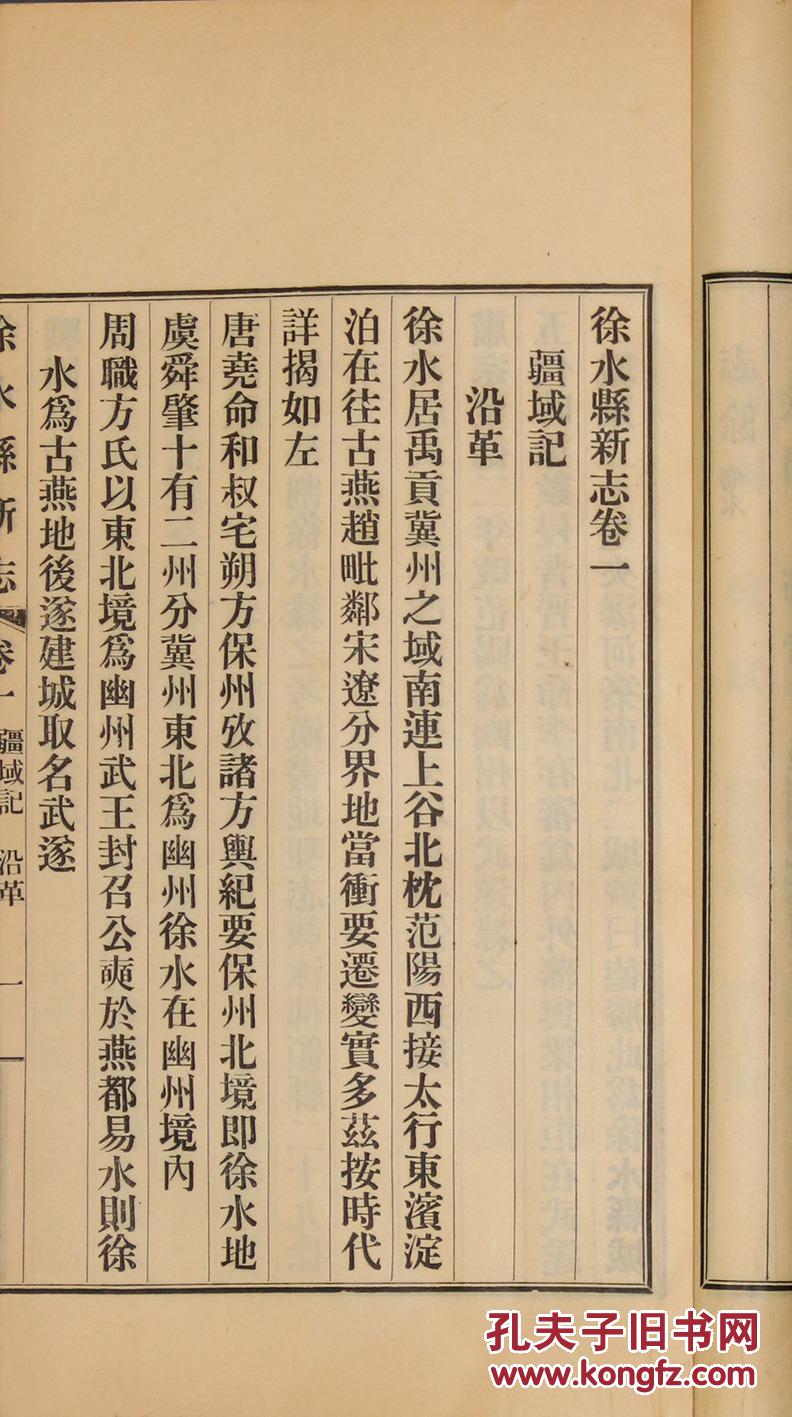 徐水縣新志卷一
疆域記
沿革
徐水居禹貢冀州之域南連上谷北枕范陽西接太行東濱淀
泊在往古燕趙毗鄰宋遼分界地當衝要遷變實多茲按時代
詳揭如左
唐堯命和叔宅朔方保州攷諸方輿紀要保州北境即徐水地
虞舜肇十有二州分冀州東北爲幽州徐水在幽州境內
周職方氏以東北境爲幽州武王封召公奭於燕都易水則徐
水爲古燕地後遂建城取名武遂
徐水縣新志 卷一 疆域記 沿革 一
孔夫子旧书网
www.kongfz.com